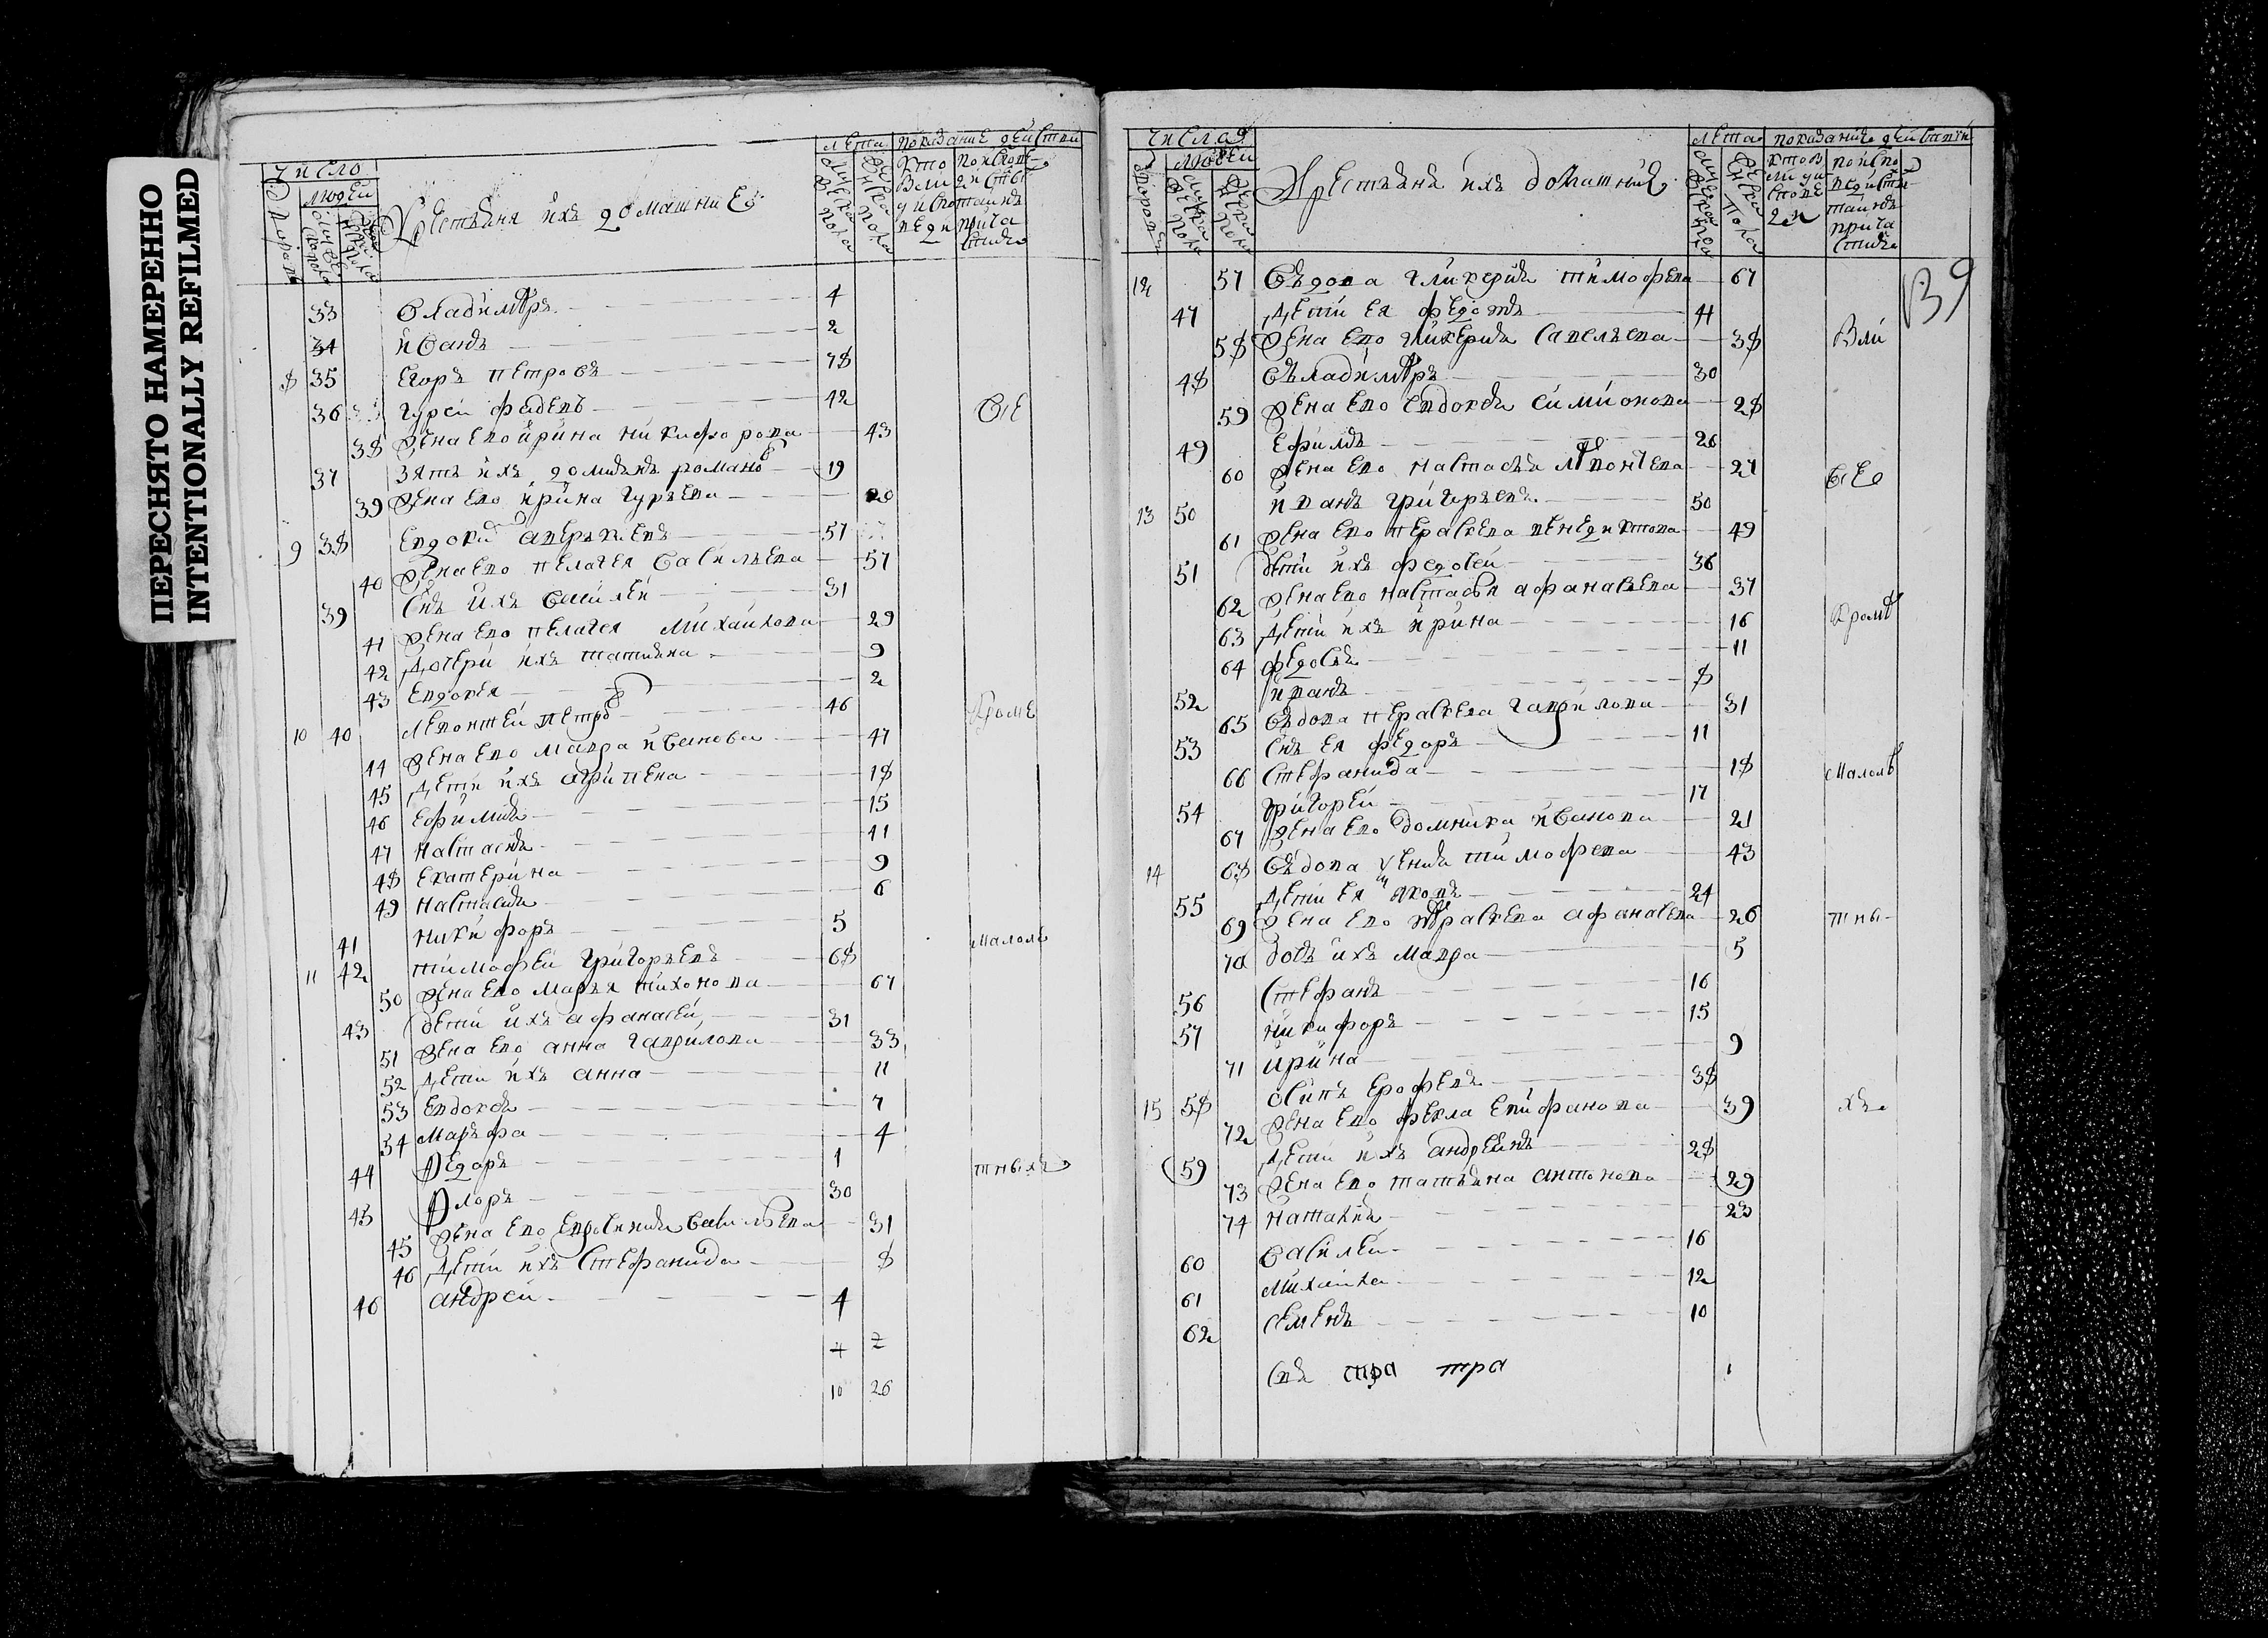 ПЕРЕСНЯТО НАМЕРЕННО
INTENTIONALLY REFILMED
число
людей
Крестьяня ихъ домашние
лета
показание действи
33 Владимиръ 4
34 иванъ 2
8 35 Егоръ петровъ 78
36 гурей фадеевъ 42 все
38 жена ево ирина никифорова 43
37 зять ихъ романо 19
39 жена ево ирина гурьева 20
9 38 Евдоки аверькиевъ 57
40 жена ево пелагея васильева 57
39 снъ ихъ василей 31
41 жена ево пелагея михайлова 29
42 дочери ихъ татияна 9
43 Евдокея 2
10 40 леонтей петро 46 кроме
44 жена ево мавра иванова 47
45 дети ихъ агрипена 18
46 Ефимия 15
47 настасия 11
48 екатерина 9
49 настасия 6
41 никифоръ 5
11 42 тимофей григорьевъ 68 малолѣ
50 жена ево марья тихонова 67
43 дети ихъ афанасей 31
51 жена ево анна гаврилова 33
52 дети ихъ анна 11
53 Евдокия 7
54 марьфа 4
44 Федоръ 1 тныхъ
45 Флоръ 30
45 жена ево васильева 31
46 дети ихъ стефанида 8
46 андрей 4
10 26
числа
людей
Крестьяня ихъ домашния
лета
показание действи
39
12 57 вьдова гликерия тимофева 67
47 дети ея федотъ 44
58 жена ево гликерия савельева 38 Вли
48 вьладимиръ 30
59 жена ево евдокия симионова 28
49 Ефимъ 26
60 жена ево настасья леонтева 27 все
13 50 иванъ григорьевъ 50
61 жена ево перасkева венедиктова 49
51 дети ихъ федосей 36
62 жена ево настасья афанасьева 37
63 дети ихъ ирина 16 кромѣ
64 федосья 11
52 иванъ 8
65 вьдова перасkева гаврилова 31
53 снъ ея федоръ 11
66 стефанида 18 малолѣ
54 григорей 17
67 жена ево домника иванова 21
14 68 вьдова тимофева 43
55 дети ея яковъ 24
69 жена ево афанасева 26 тны
70 дочь ихъ мавра 5
56 стефанъ 16
57 никифоръ 15
71 ирина 9
15 58 осипъ ерофеевъ 38
72 жена ево фекла епифанова 39 хъ
59 дети ихъ андреянъ 28
73 жена ево татьяна антонова 29
74 наталия 23
60 василей 16
61 михаила 12
62 семенъ 10
тра тра